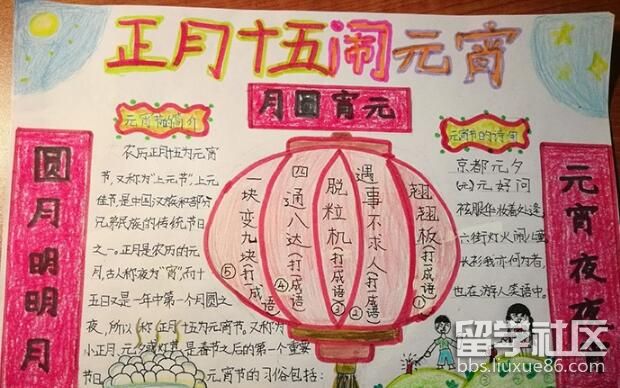 正月十五闹元宵
月圆宵元
圆月明明月
元宵夜夜
元宵节的简介
农历正月十五为元宵
节,又称为“上元节”,上元
佳节,是中国汉族和部分
兄弟民族的传统节日
之一。正月是农历的元
月,古人称夜为“宵”,而十
五日又是一年中第一个月圆之
夜,所以称正月十五为元宵节。又称为
小正月,元夕或灯节,是春节之后的第一个重要
节日
元宵节的习俗包括:
翘翘板(打一成语)①
遇事不求人(打一成语)②
脱粒机(打一成语)③
四通八达(打一成语)④
一块变九块(打一成语)⑤
元宵节的诗句
京都元夕
元好问
袨服华妆着处逢
六街灯火闹儿童
长衫我亦何为者,
也在游人笑语中。
留学社区
bbs.liuxue86.com